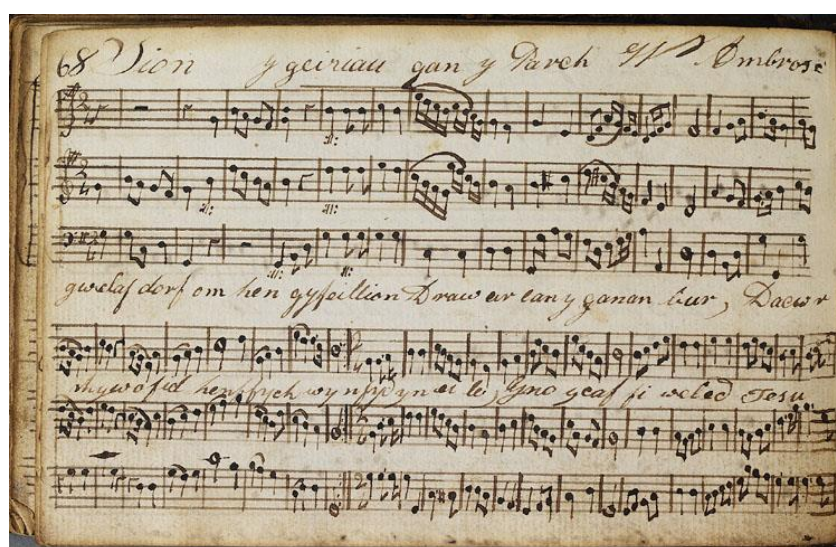 68 Sion y geiriau gan y Parch W Ambrose
gwelaf dorf om hen gyfeillion Draw ar lan y ganan bur, Daew r
rhyw ofid henffych wynfyd yn ei le, Yno y caf fi weled Iesu